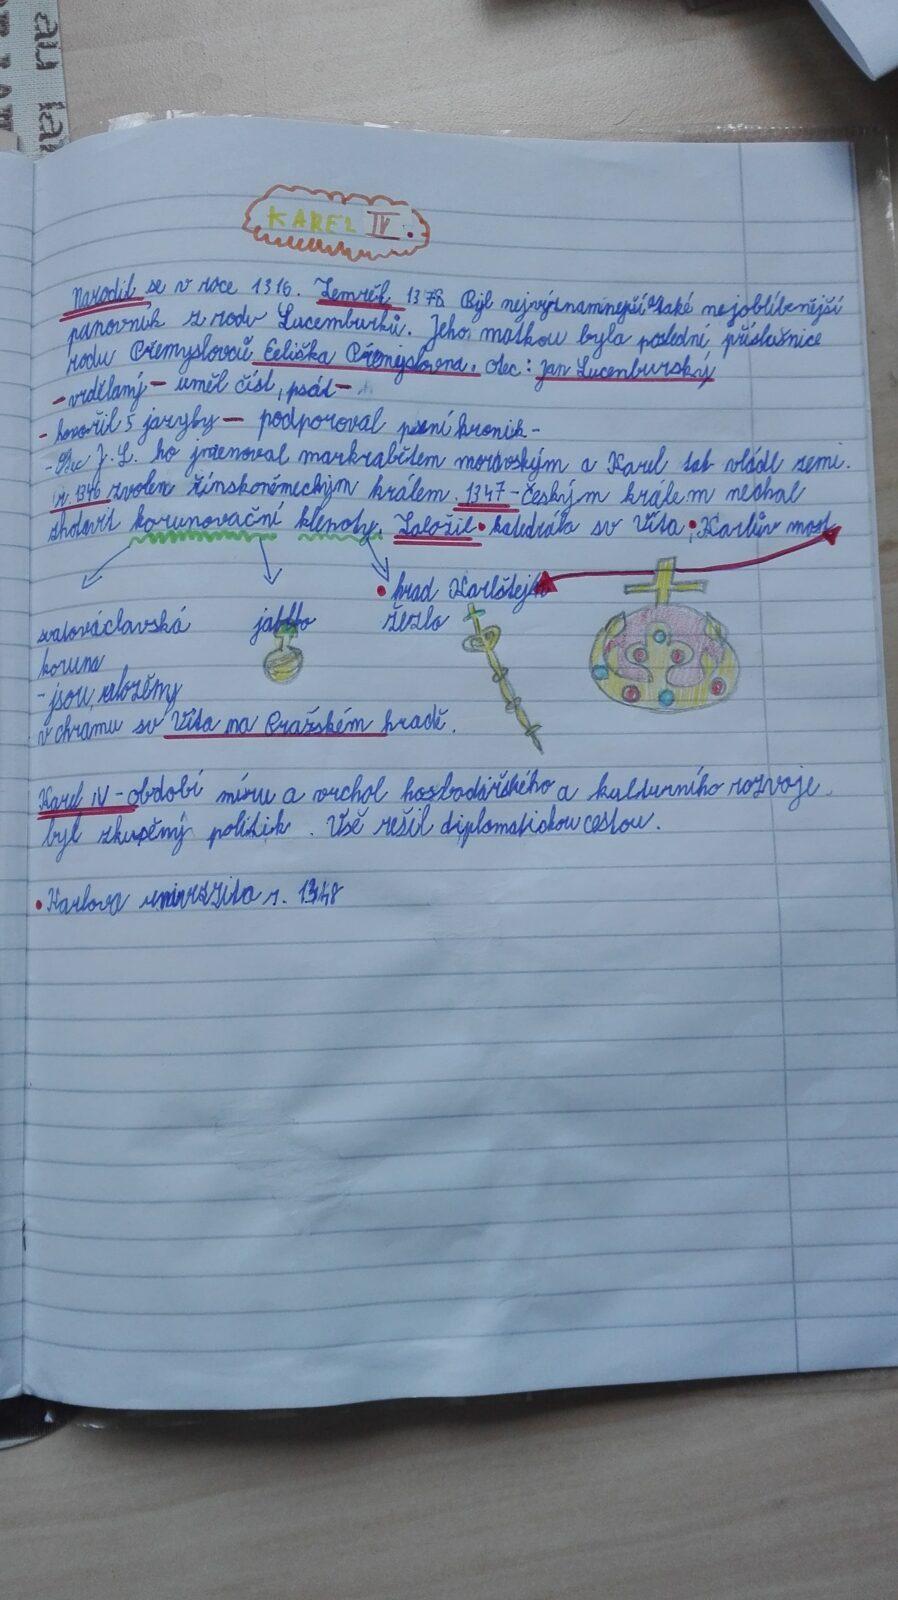 au
KAREL IV.
Narodil se v roce 1316. Zemřel 1378 Byl nejvýznamnější také nejoblíbenější
panovník z rodu Lucemburků. Jeho matkou byla poslední příslušnice
rodu Přemyslovců Eeliška Přemyslovna. Otec: Jan Lucemburský
- vzdělaný - uměl číst, psát -
- hovořil 5 jazyby - podporoval psaní kronik -
- Otec J. L. ho jmenoval markrabětem moravským a Karel tak vládl zemi.
r 1346 zvolen římskoněmeckým králem. 1347 - českým králem nechal
zhotovit korunovační klenoty. Založil • katedrála sv Víta • Karlův most
• hrad Karlštejn
svatováclavská jablko žezlo
koruna
- jsou uloženy
v chramu sv Víta na Pražském hradě.
Karel IV - období míru a vrchol hosbodářského a kulturního rozvoje.
byl zkušěný politik. Vše řešil diplomatickou cestou.
• Karlova r. 1348